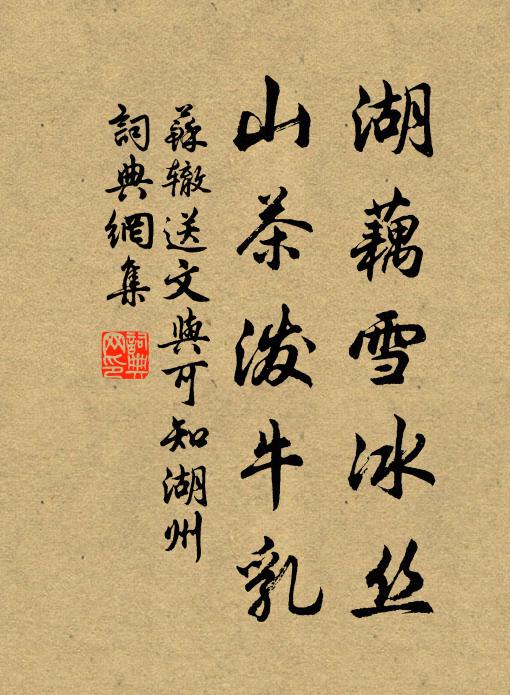 湖藕雪冰丝
山茶泼牛乳
蘇辙送文與可知湖州
詞典網集
詞典
网印